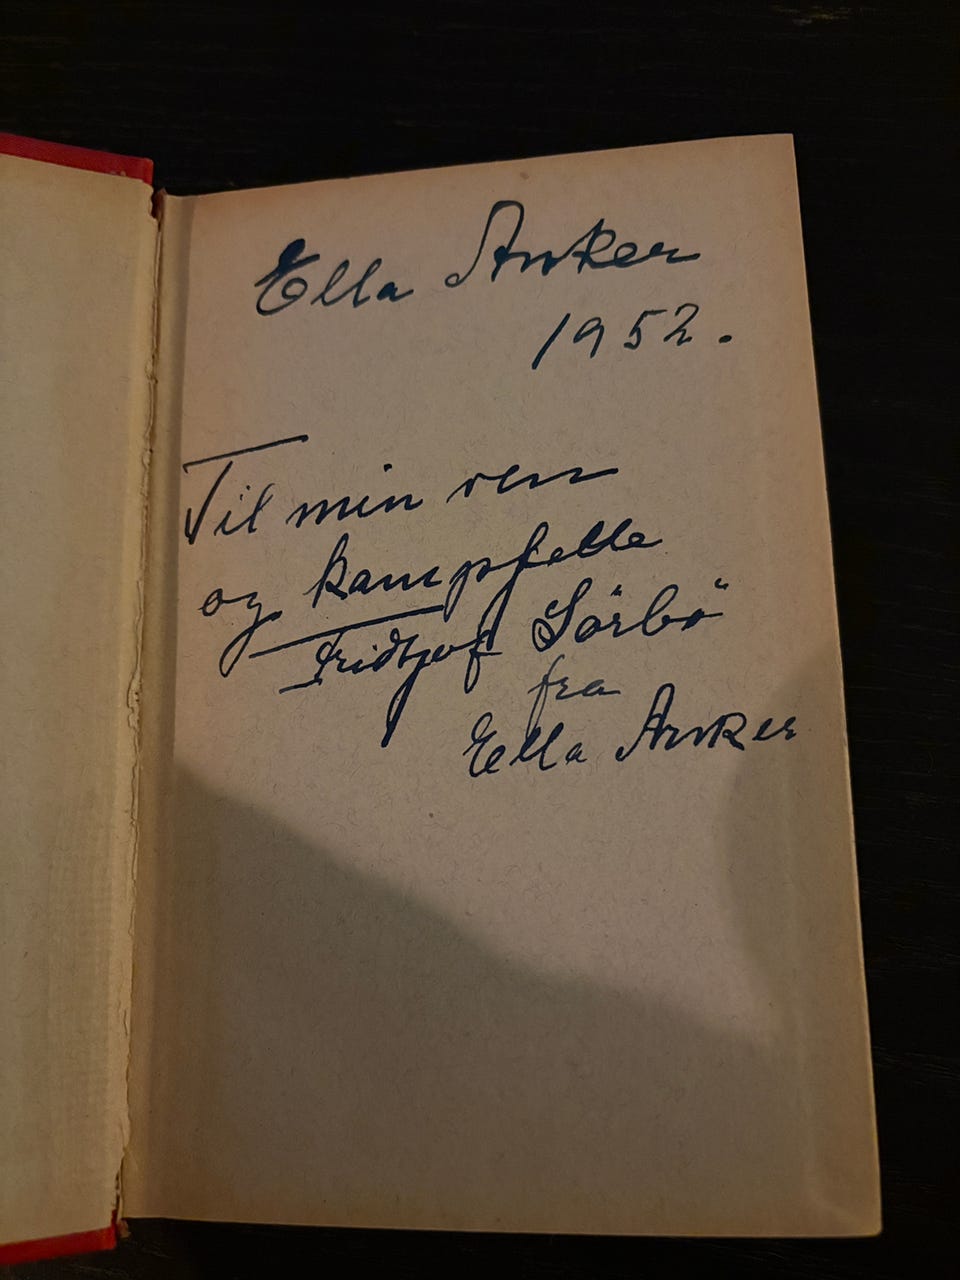 Ella Anker
1952.
Til min ven
og kampfelle
Fridtjof Sörbö
fra
Ella Anker